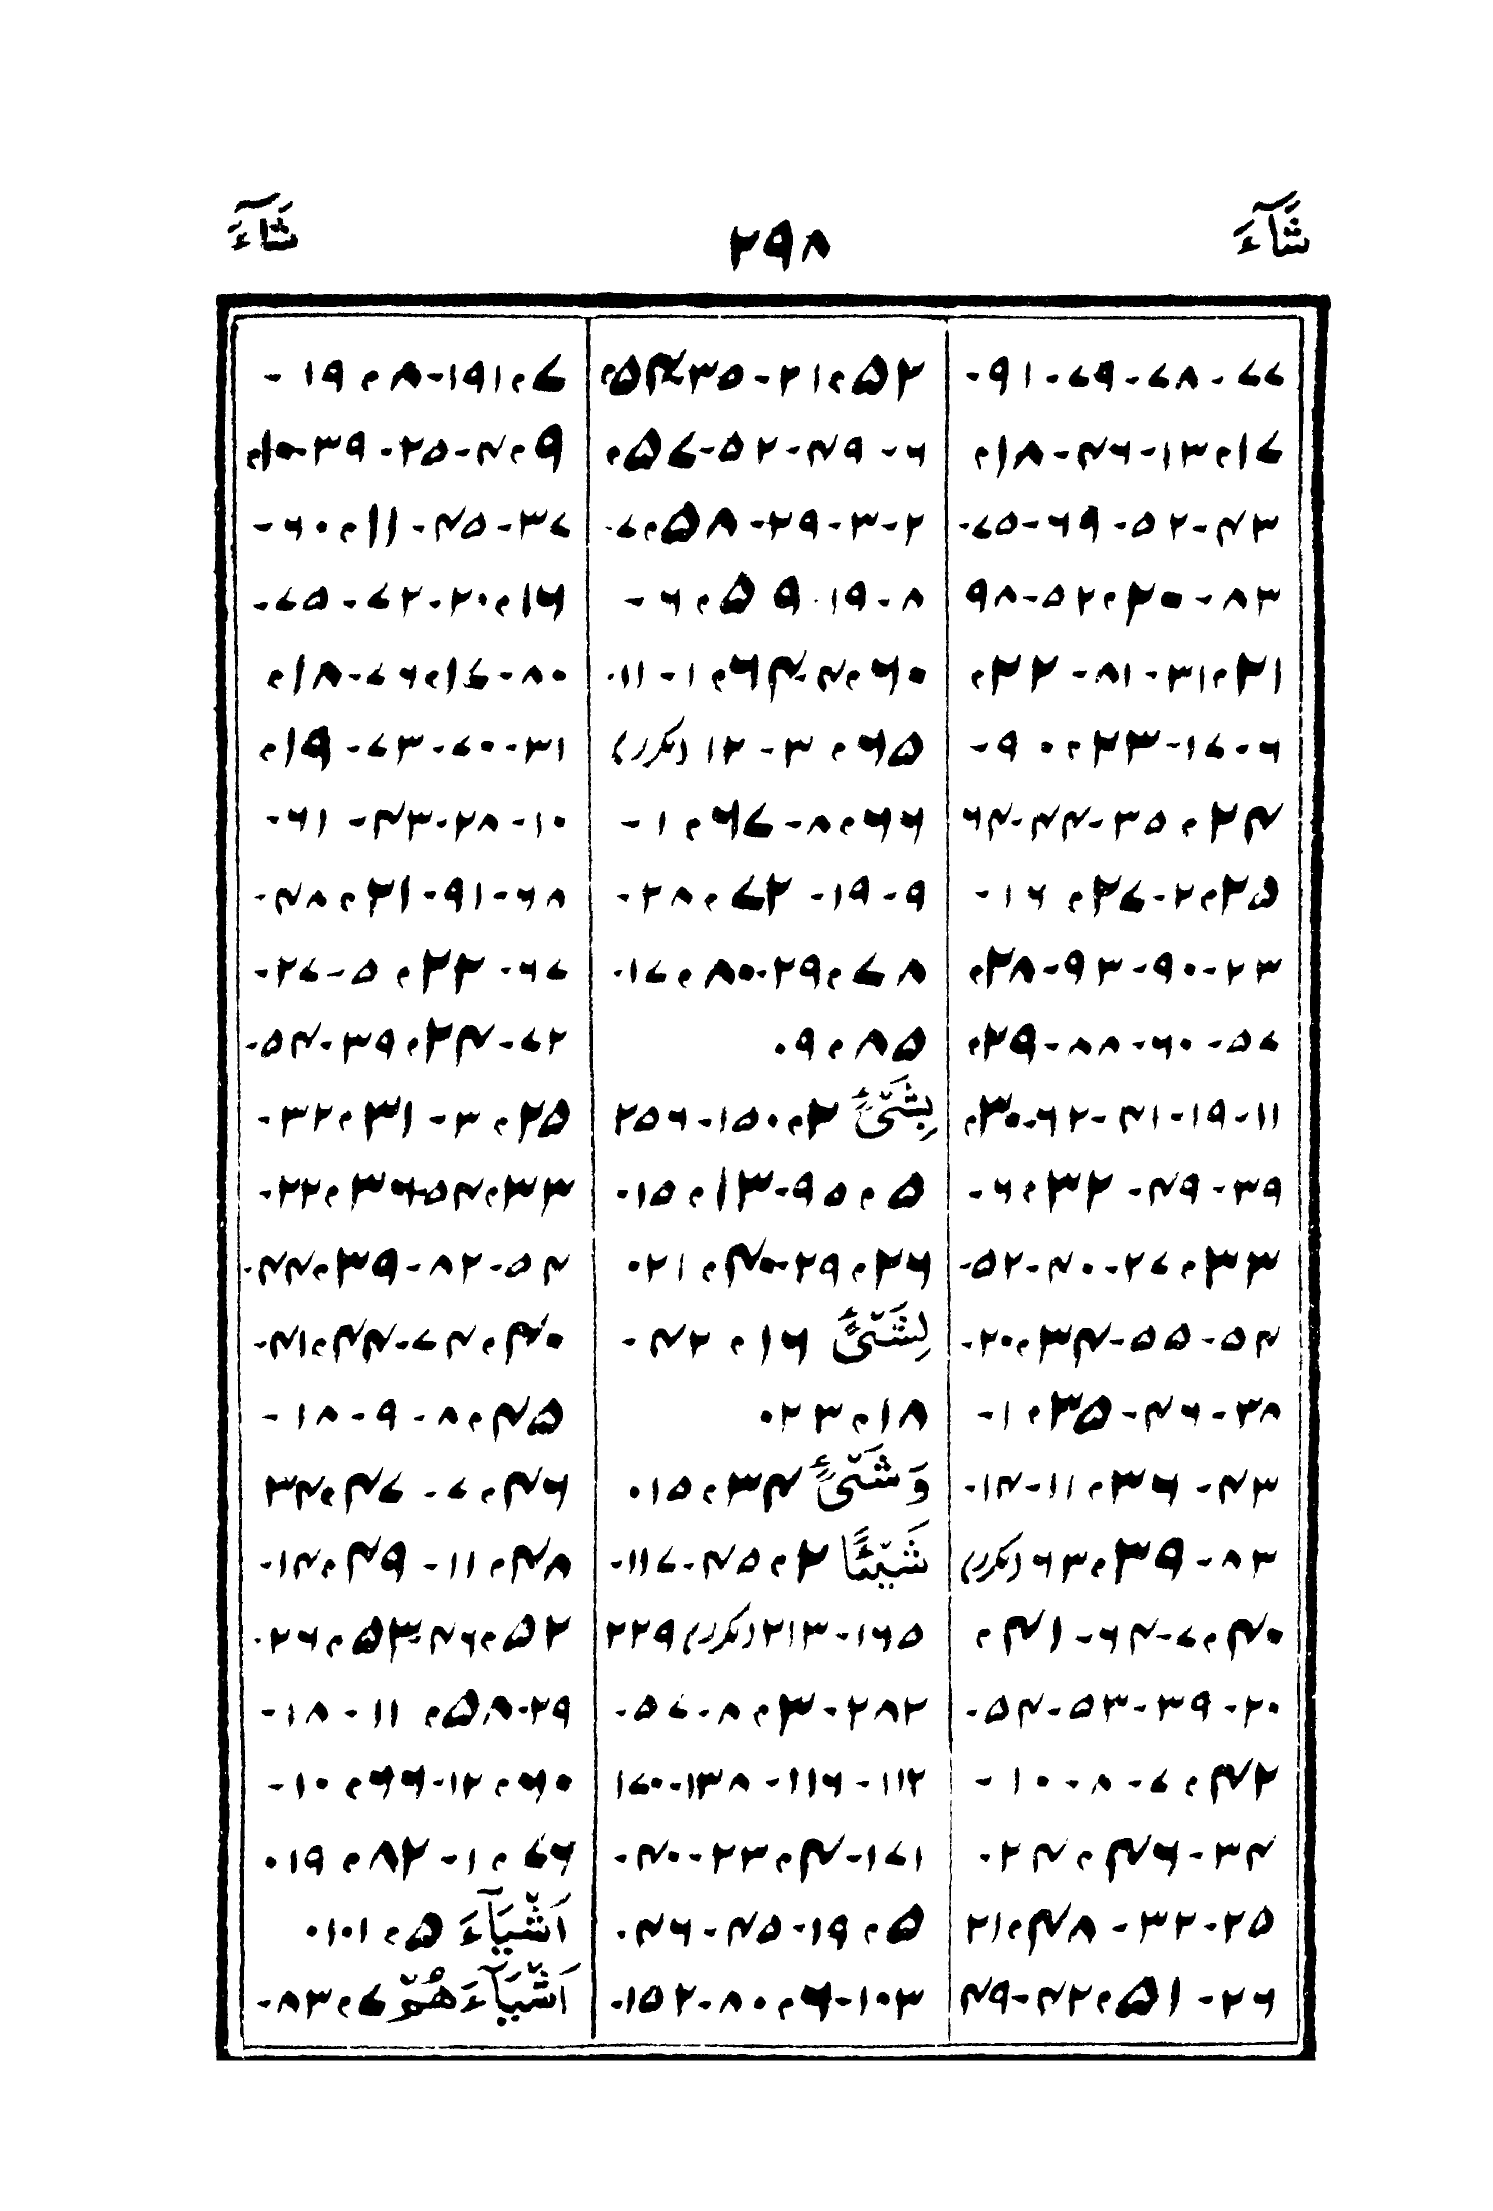 شَآءَ
۲۹۸
شَآءَ
۷۷-۷۸-۷۹-۹۱-
۱۷؍۱۳-۴۶-۱۸؍
۴۳-۵۲-۶۹-۷۵-
۸۳-۲۰؍۵۲-۹۸
۲۱؍۳۱-۸۱-۲۲؍
۶-۱۷-۲۳؍۹۰-
۲۴؍۳۵-۴۴-۴۶
۲۵؍۲-۲۷؍۱۶-
۲۳-۹۰-۹۳-۲۸؍
۵۷-۶۰-۸۸-۲۹؍
۱۱-۱۹-۴۱-۶۲-۳۰؍
۳۹-۴۹-۳۲؍۶-
۳۳؍۲۷-۴۰-۵۲-
۵۴-۵۵-۳۴؍۲۰-
۳۸-۴۶-۳۵؍۱-
۴۳-۳۶؍۱۱-۱۴-
۸۳-۳۹؍۶۳ (مکرر)
۴۰؍۷-۶۴-۴۱؍
۲۰-۳۹-۵۳-۵۴-
۴۲؍۷-۸-۱۰-
۴۳-۴۶؍۲۴-
۲۵-۳۲-۴۸؍۲۱
۲۶-۵۱؍۴۲-۴۹
۵۲؍۲۱-۳۵-۵۴؍
۶-۴۹-۵۲-۵۷؍
۲-۳-۲۹-۵۸؍۷-
۸-۱۹-۵۹؍۶-
۶۰؍۴-۶۴؍۱-۱۱-
۶۵؍۳-۱۲ (مکرر)
۶۶؍۸-۶۷؍۱-
۹-۱۹-۷۲؍۲۸-
۷۸؍۲۹-۸۰؍۱۷-
۸۵؍۹-
بِشَیْءٍ ۲؍۱۵۰-۲۵۶
۵؍۹۵-۱۳؍۱۵-
۲۶؍۲۹-۴۰؍۲۱-
لِشَیْءٍ ۱۶؍۴۲-
۱۸؍۲۳-
وَشَیْءٍ ۳۴؍۱۵-
شَیْئًا ۲؍۴۵-۱۱۷-
۱۶۵-۲۱۳ (مکرر) ۲۲۹
۲۸۲-۳؍۸-۵۷-
۱۱۲-۱۱۶-۱۳۸-۱۷۰
۱۷۱-۴؍۲۳-۴۰-
۵؍۱۹-۴۵-۴۶-
۱۰۳-۶؍۸۰-۱۵۲-
۷؍۱۹۱-۸؍۱۹-
۹؍۴-۲۵-۳۹-۱۰؍
۳۷-۴۵-۱۱؍۶۰-
۱۶؍۲۰-۷۲-۷۵-
۸۰-۱۷؍۷۶-۱۸؍
۳۱-۷۰-۷۳-۱۹؍
۱۰-۲۸-۴۳-۶۱-
۶۸-۹۱-۲۱؍۴۸-
۶۷-۲۲؍۵-۲۷-
۷۲-۲۴؍۳۹-۵۴-
۲۵؍۳-۳۱؍۳۲-
۳۳؍۵۴-۳۶؍۲۲-
۵۴-۸۲-۳۹؍۴۴-
۴۰؍۷۴-۴۴؍۴۱-
۴۵؍۸-۹-۱۸-
۴۶؍۷-۴۷؍۳۴
۴۸؍۱۱-۴۹؍۱۴-
۵۲؍۴۶-۵۳؍۲۶-
۲۹-۵۸؍۱۱-۱۸-
۶۰؍۱۲-۶۶؍۱۰-
۷۶؍۱-۸۲؍۱۹-
اَشْیَآءَ ۵؍۱۰۱-
اَشْیَآءَهُمْ ۷؍۸۳-